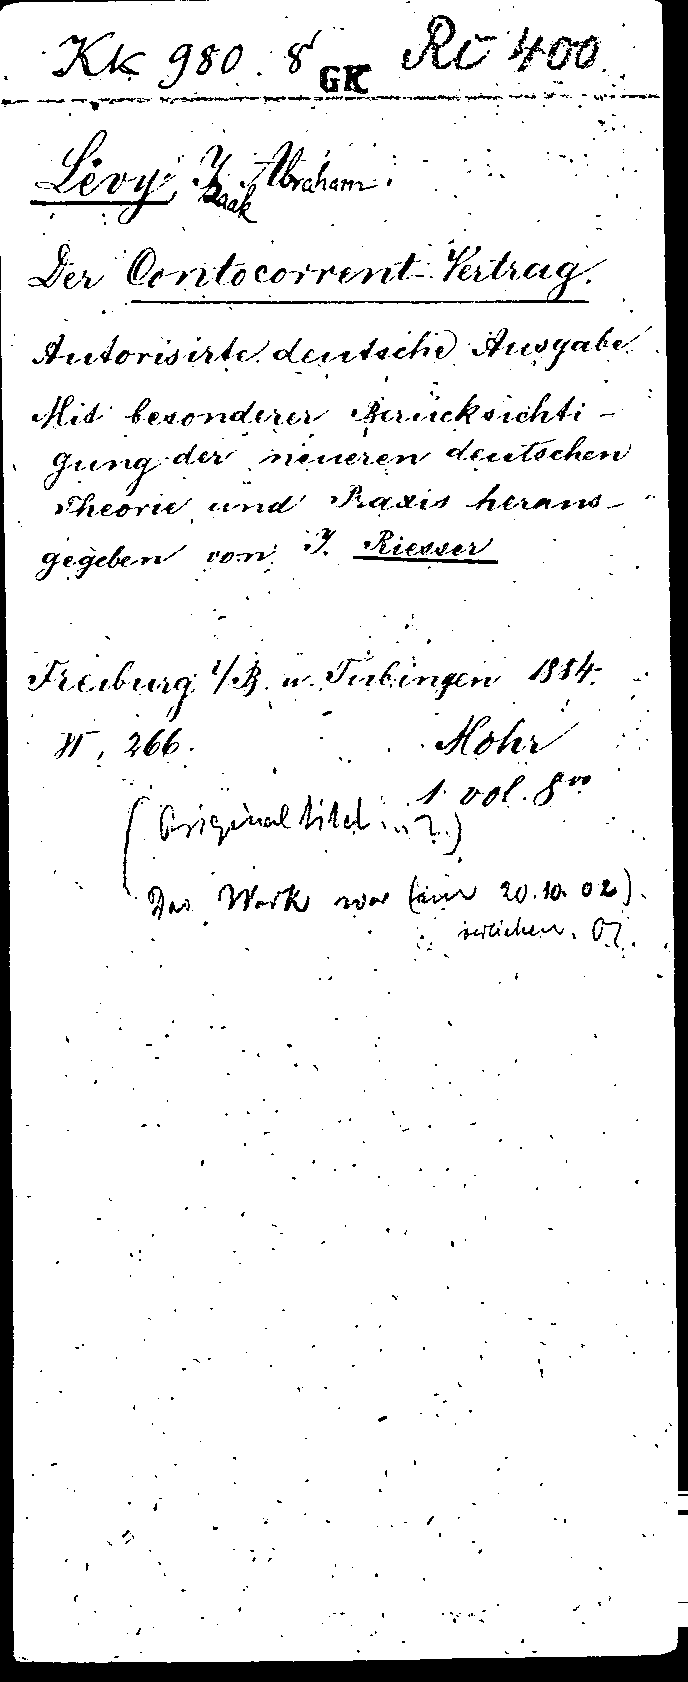 Kk 980. 8° GK Ri 400
Lévy, Isaak Abraham.
Der Contocorrent-Vertrag.
Autorisirte deutsche Ausgabe.
Mit besonderer Berücksichti-
gung der neueren deutschen
Theorie und Praxis heraus-
gegeben von J. Riesser
Freiburg i/B. u. Tübingen 1884.
266. Mohr
1 vol. 8vo
(Originaltitel: „?)
Das Werk war (am 20.10.02)
verliehen.